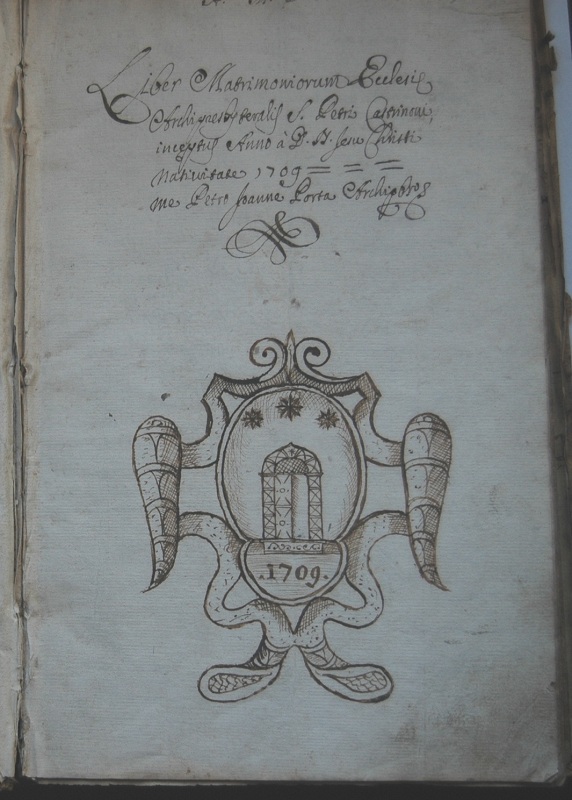 Liber Matrimoniorum Ecclesie
Archipresbyteralis S. Petri Castrinovi,
inceptus Anno à D. N. Jesu Christi
Nativitate 1709 = = =
me Petro Joanne Porta Archipbro
.1709.